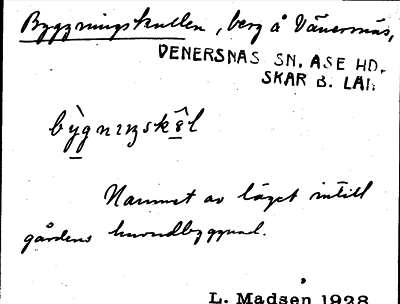 Byggningskullen, berg å Vänernäs,
VENERSNAS SN. ASE HD.
SKAR B. LÄN
bỳgnıŋskêl
Namnet av läget intill
gårdens huvudbyggnad.
L. Madsen 1928